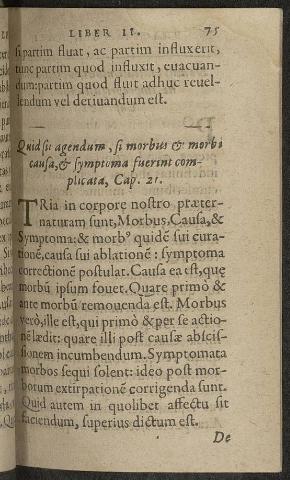 LIBER II. 75
si partim fluat, ac partim influxerit,
tunc partim quod influxit, euacuan-
dum: partim quod fluit adhuc reuel-
lendum vel deriuandum est.
Quid sit agendum, si morbus & morbi
causa, & symptoma fuerint com-
plicata, Cap. 21.
TRia in corpore nostro præter-
naturam sunt, Morbus, Causa, &
Symptoma: & morbꝰ quidē sui cura-
tionē, causa sui ablationē: symptoma
correctionē postulat. Causa ea est, quę
morbū ipsum fouet. Quare primò &
ante morbū remouenda est. Morbus
verò, ille est, qui primò & per se actio-
nē lædit: quare illi post causæ abscis-
sionem incumbendum. Symptomata
morbos sequi solent: ideo post mor-
borum extirpationē corrigenda sunt.
Quid autem in quolibet affectu sit
faciendum, superius dictum est.
De